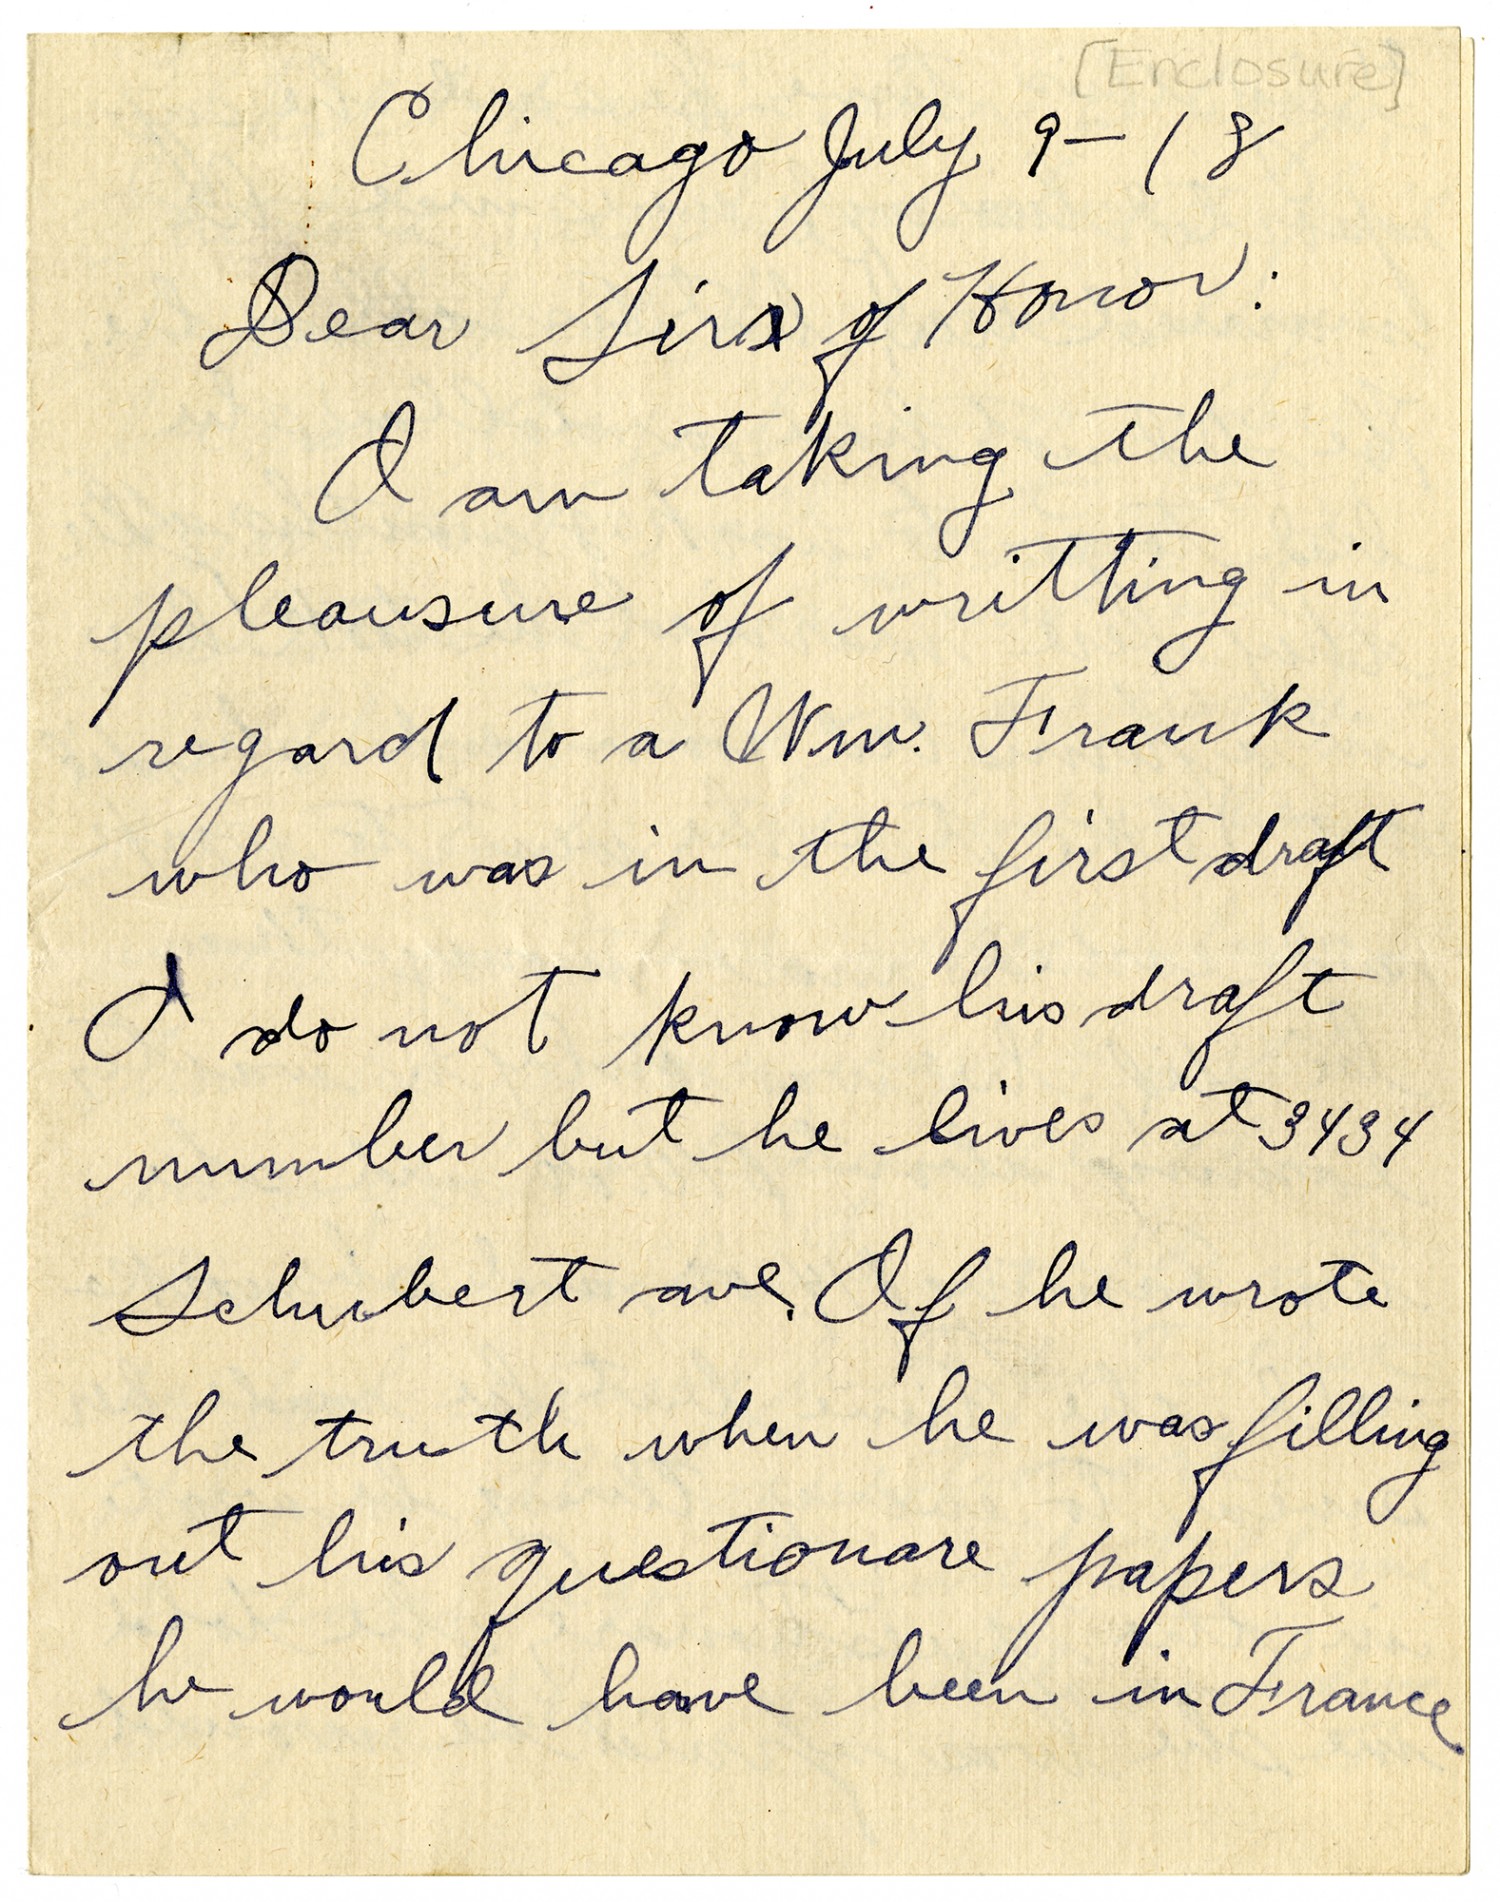 [Enclosure]
Chicago July 9-18
Dear Sirs of Honor:
I am taking the
pleausure of writting in
regard to a Wm. Frank
who was in the first draft
I do not know his draft
number but he lives at 3434
Schubert ave. If he wrote
the truth when he was filling
out his questionare papers
he would have been in France